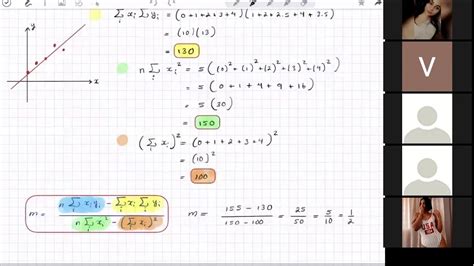 Σ xᵢ Σ yᵢ = (0+1+2+3+4)(1+2+2.5+4+3.5)
i i
= (10)(13)
= 130
n Σ xᵢ² = 5((0)²+(1)²+(2)²+(3)²+(4)²)
i
= 5(0+1+4+9+16)
= 5(30)
= 150
(Σ xᵢ)² = (0+1+2+3+4)²
i
= (10)²
= 100
y
x
m = (n Σ xᵢyᵢ − Σ xᵢ Σ yᵢ) / (n Σ xᵢ² − (Σ xᵢ)²) m = (155 − 130) / (150 − 100) = 25/50 = 5/10 = 1/2
V
USA